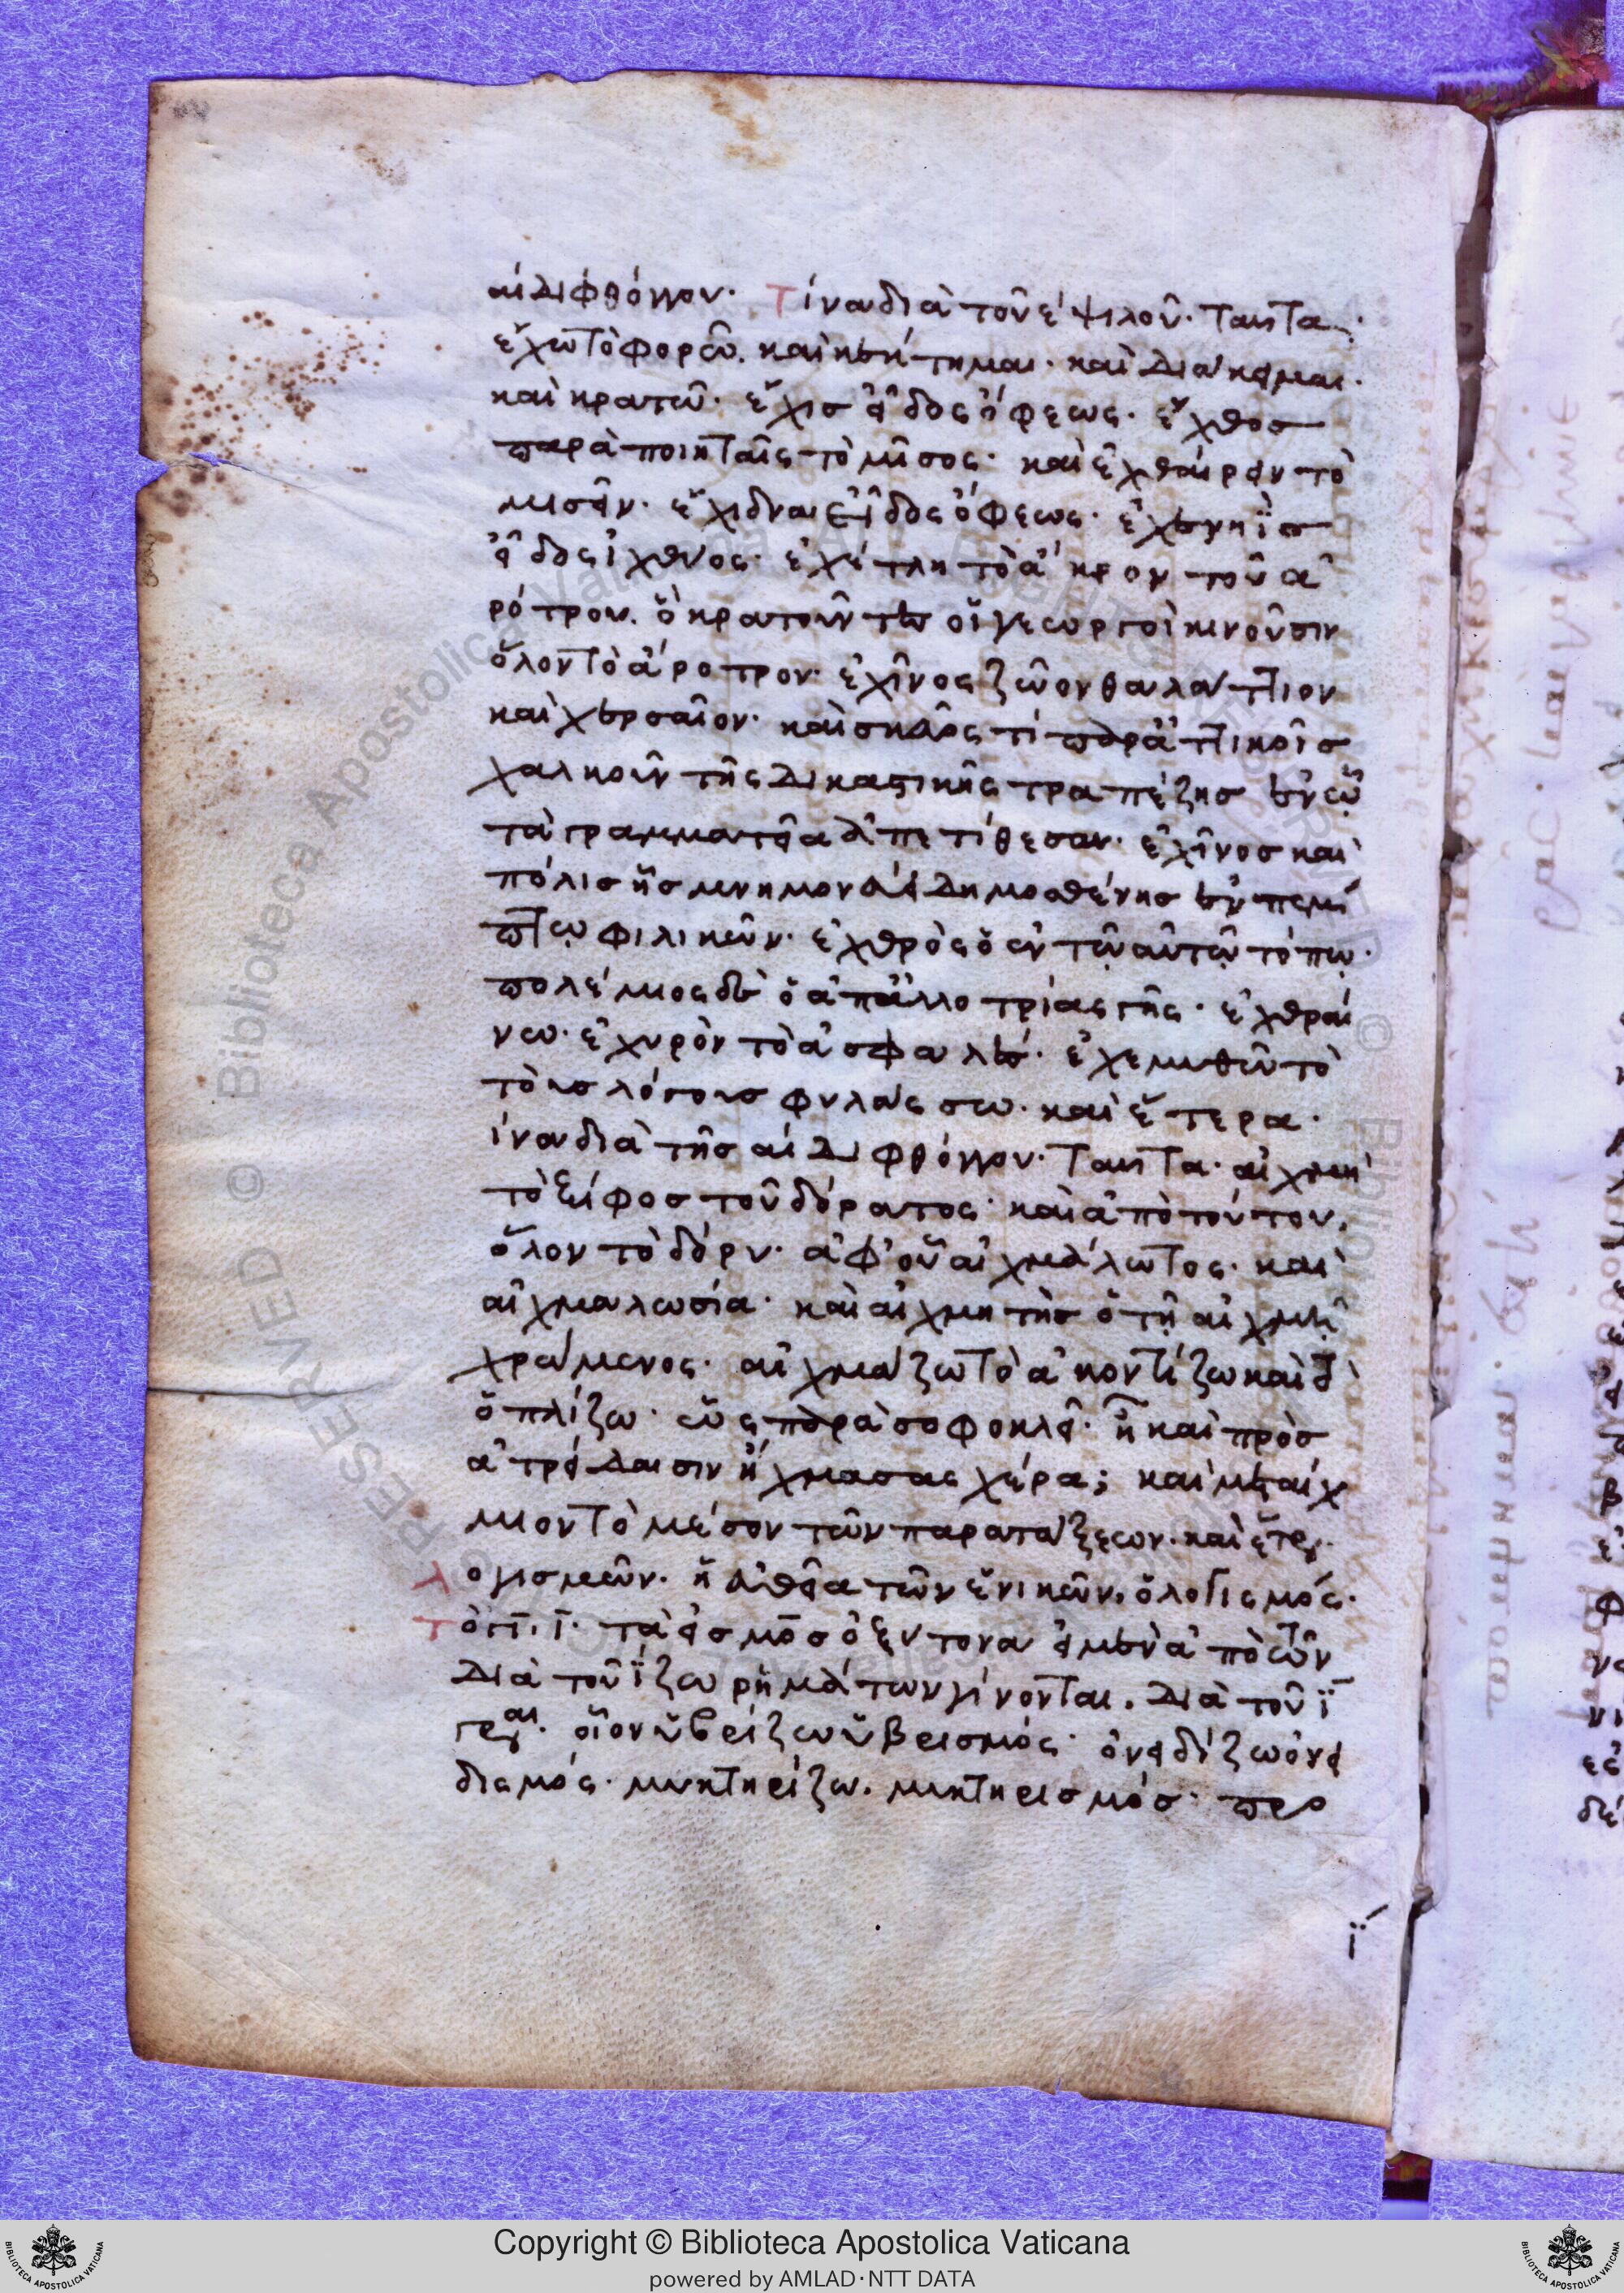 αι διφθόγγου. Τίνα διὰ τοῦ ε ψιλοῦ. ταῦτα.
ἔχω τὸ φορῶ. καὶ κέκτημαι. καὶ διάκειμαι.
καὶ κρατῶ. ἔχις εἶδος ὄφεως. ἔχθος
παρὰ ποιηταῖς τὸ μῖσος. καὶ ἐχθαίρειν τὸ
μισεῖν. ἔχιδνα εἶδος ὄφεως. ἐχενηῒς
εἶδος ἰχθύος. ἐχέτλη τὸ ἄκρον τοῦ ἀ
ρότρου. ὃ κρατοῦντες οἱ γεωργοὶ κινοῦσιν
ὅλον τὸ ἄροτρον. ἐχῖνος ζῶον θαλάττιον
καὶ χερσαῖον. καὶ σκεῦος τί παρὰ ἀττικοῖς
χαλκοῦν τῆς δικαστικῆς τραπέζης ἐν ᾧ
τὰ γραμματεῖα ἀπετίθεσαν. ἐχῖνος καὶ
πόλις ἧς μνημονεύει δημοσθένης ἐν πέμ
πτῳ φιλικῶν. ἐχθρὸς ὁ ἐν τῷ αὐτῷ τόπῳ.
πολέμιος δὲ ὁ ἀπ ἀλλοτρίας γῆς. ἐχθραί
νω. ἐχυρὸν τὸ ἀσφαλές. ἐχεμυθῶ τὸ
τοὺς λόγους φυλάσσω. καὶ ἕτερα.
ίνα διὰ τῆς αι διφθόγγου. ταῦτα. αἰχμὴ
τὸ ξίφος τοῦ δόρατος. καὶ ἀπὸ τούτου,
ὅλον τὸ δόρυ. ἀφ' οὗ αἰχμάλωτος. καὶ
αἰχμαλωσία. καὶ αἰχμητὴς ὁ τῇ αἰχμῇ
χρώμενος. αἰχμάζω τὸ ἀκοντίζω καὶ τὸ
ὁπλίζω. ὡς παρὰ σοφοκλεῖ. ἦ καὶ πρὸς
ἀτρείδαισιν ᾔχμασας χέρα; καὶ μεταίχ
μιον τὸ μέσον τῶν παρατάξεων. καὶ ἕτερα.
Λογισμῶν. ἡ εὐθεῖα τῶν ἑνικῶν, ὁ λογισμός.
Τὸ γι, ι. τὰ εἰς μος ὀξύτονα εἰ μὲν ἀπὸ τῶν
διὰ τοῦ ίζω ῥημάτων γίνονται. διὰ τοῦ ϊ
γράφεται. οἷον ὑβρίζω ὑβρισμός. ὀνειδίζω ὀνει
δισμός. μυκτηρίζω. μυκτηρισμός. προ
ϊ
Copyright © Biblioteca Apostolica Vaticana
powered by AMLAD·NTT DATA